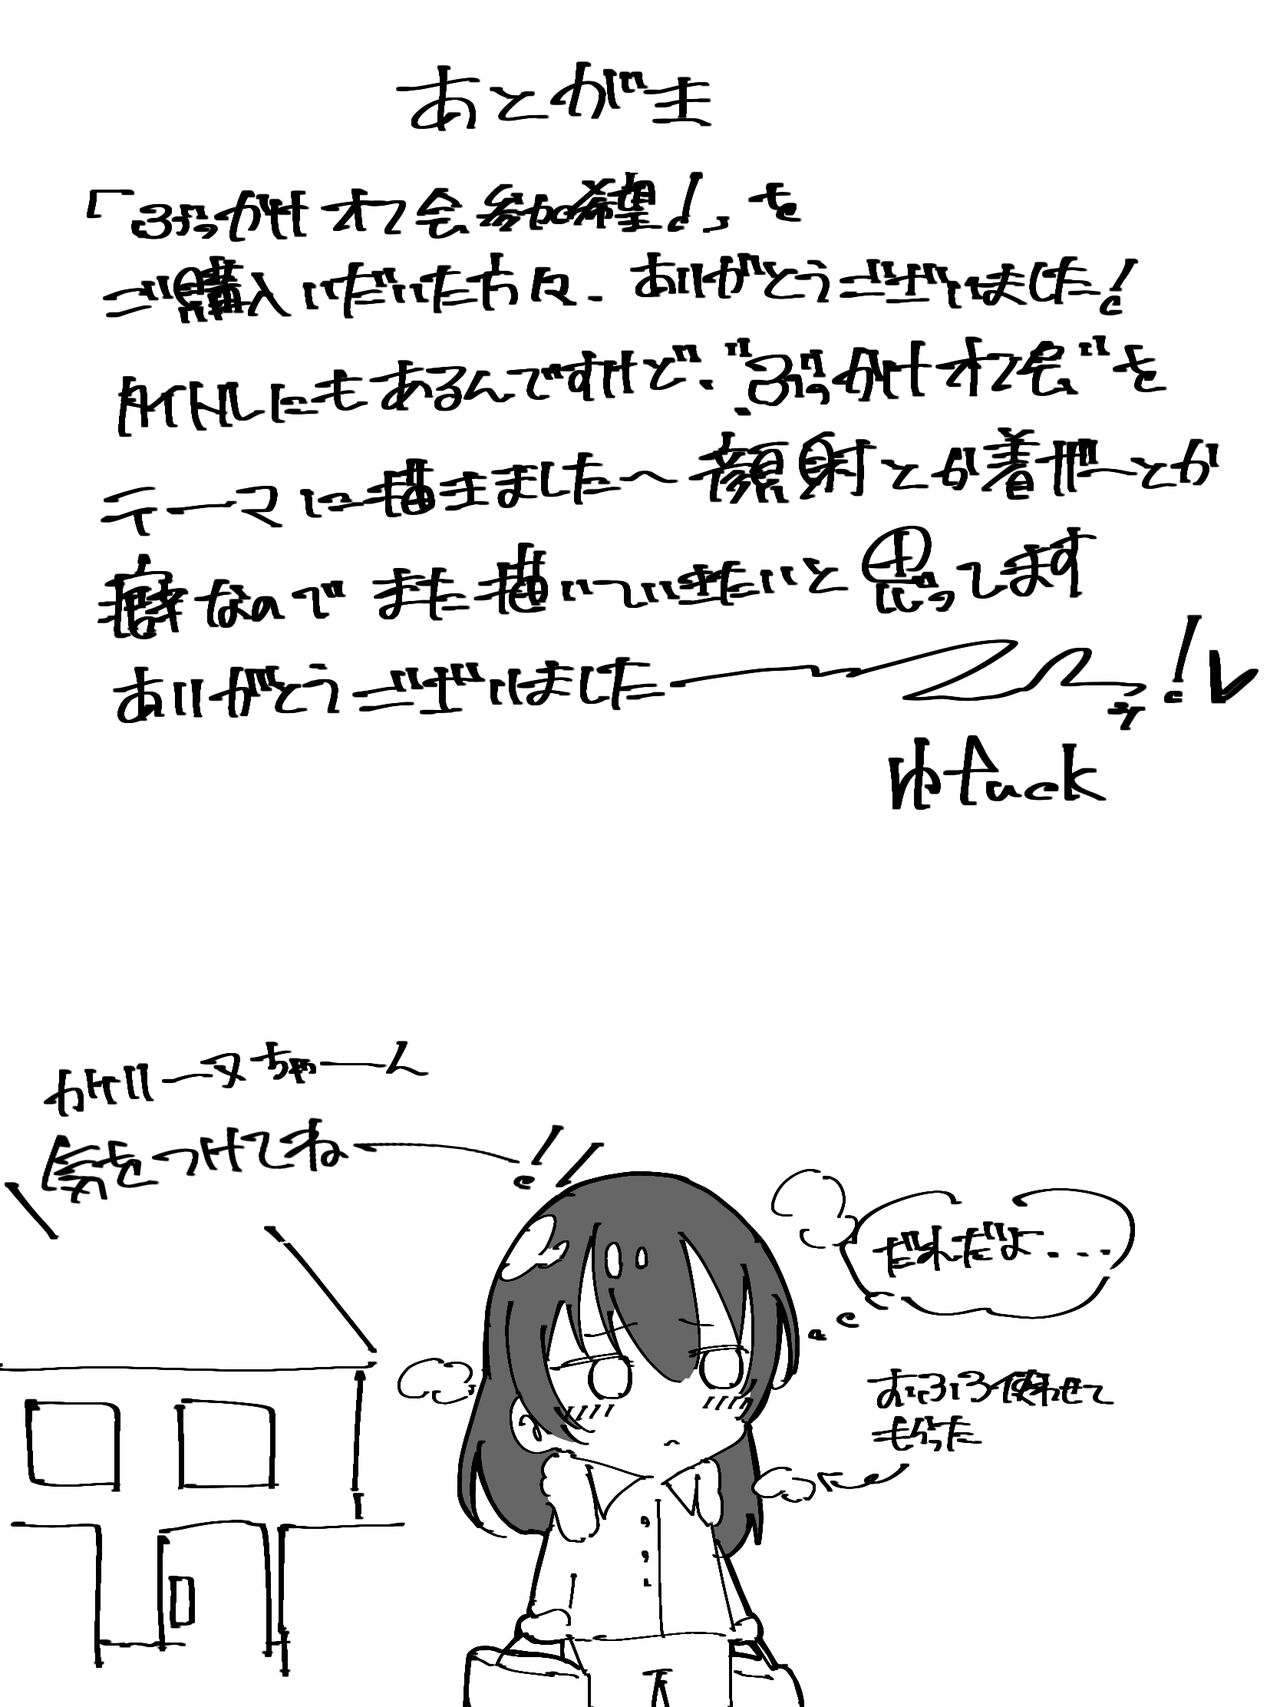 あとがき
「ぶっかけオフ会参加希望！」を
ご購入いただいた方々、ありがとうございました！
タイトルにもあるんですけど、“ぶっかけオフ会”を
テーマに描きました～顔射とか着ザーとか
癖なので また描いていきたいと思ってます
ありがとうございました！
ゆtack
ちゃーん
気をつけてねー！
だれだよ...
おふろ使わせて
もらった